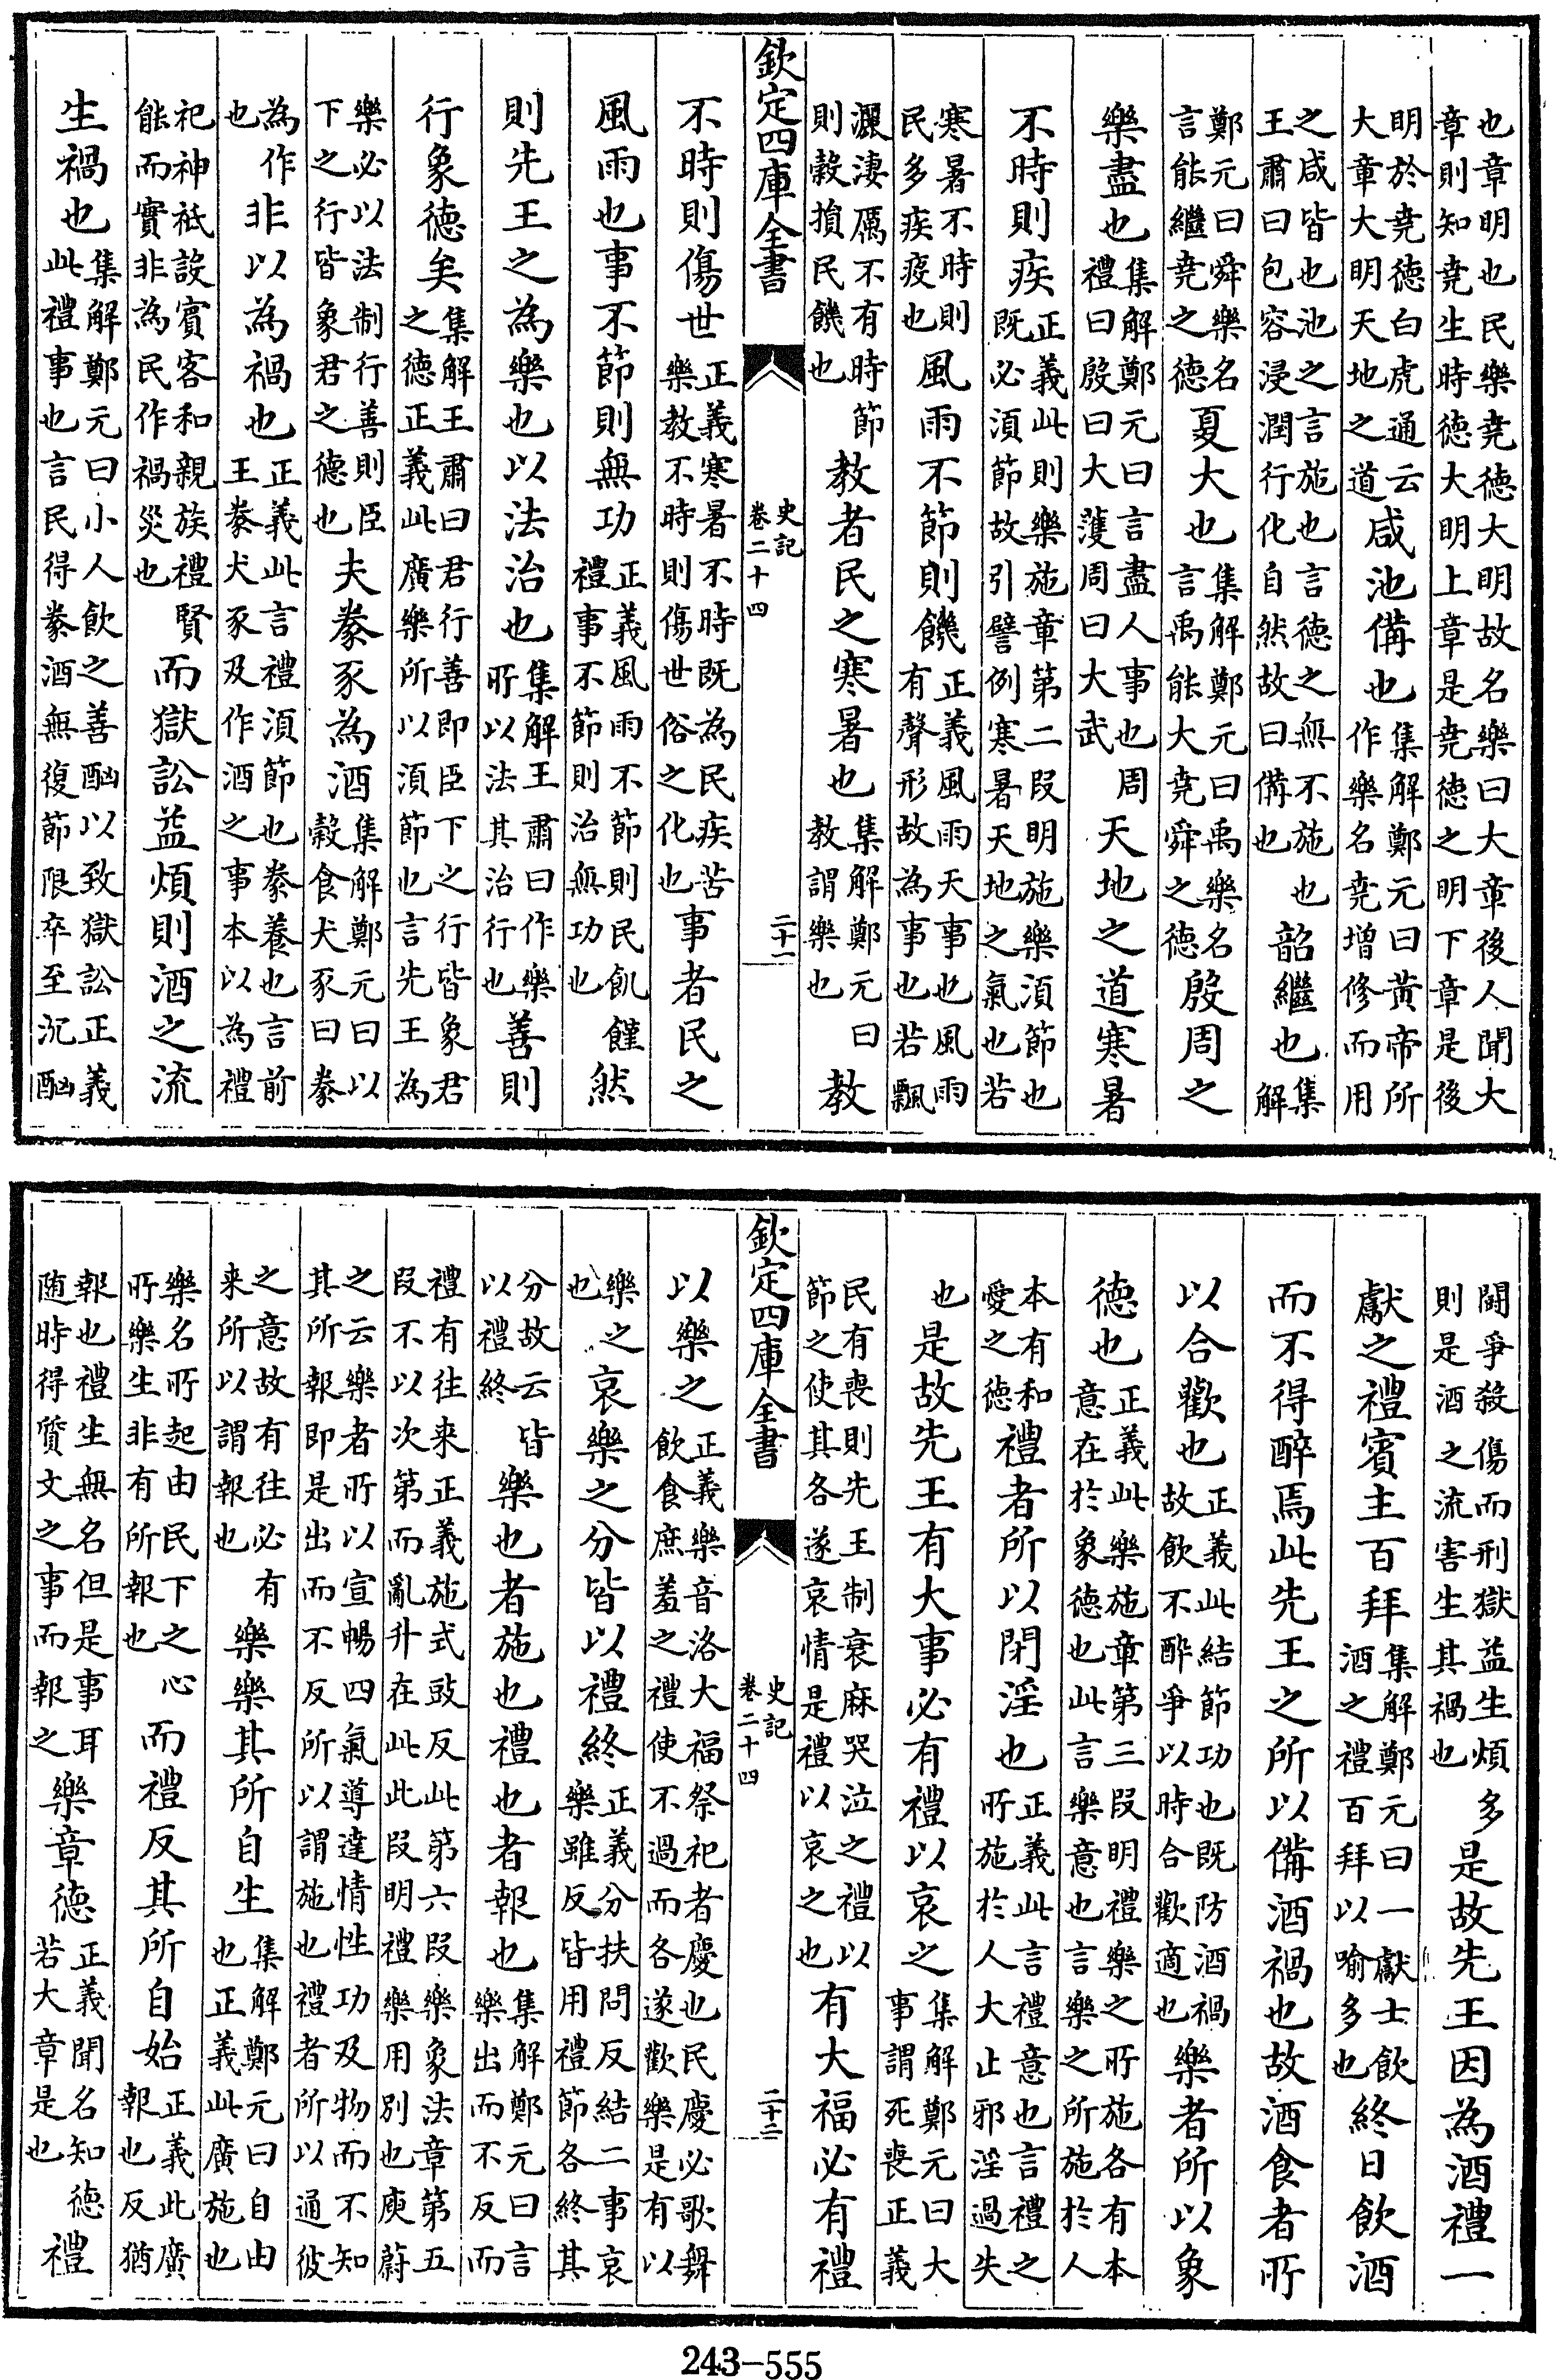 也章明也民樂堯德大明故名樂曰大章後人聞大
章則知堯生時德大明上章是堯德之明下章是後
明於堯德白虎通云
大章大明天地之道
咸池備也
集解鄭元曰黃帝所
作樂名堯增修而用
之咸皆也池之言施也言德之無不施也
王肅曰包容浸潤行化自然故曰備也
韶繼也
集
解
鄭元曰舜樂名
言能繼堯之德
夏大也
集解鄭元曰禹樂名
言禹能大堯舜之德
殷周之
樂盡也
集解鄭元曰言盡人事也周
禮曰殷曰大濩周曰大武
天地之道寒暑
不時則疾
正義此則樂施章第二段明施樂須節也
既必須節故引譬例寒暑天地之氣也若
寒暑不時則
民多疾疫也
風雨不節則饑
正義風雨天事也風雨
有聲形故為事也若飄
灑淒厲不有時節
則穀損民饑也
教者民之寒暑也
集解鄭元曰
教謂樂也
教
欽定四庫全書
史記
卷二十四
二十一
不時則傷世
正義寒暑不時既為民疾苦
樂教不時則傷世俗之化也
事者民之
風雨也事不節則無功
正義風雨不節則民飢饉
禮事不節則治無功也
然
則先王之為樂也以法治也
集解王肅曰作樂
所以法其治行也
善則
行象德矣
集解王肅曰君行善即臣下之行皆象君
之德正義此廣樂所以須節也言先王為
樂必以法制行善則臣
下之行皆象君之德也
夫豢豕為酒
集解鄭元曰以
穀食犬豕曰豢
為作
也
非以為禍也
正義此言禮須節也豢養也言前
王豢犬豕及作酒之事本以為禮
祀神祇設賓客和親族禮賢
能而實非為民作禍災也
而獄訟益煩則酒之流
生禍也
集解鄭元曰小人飲之善酗以致獄訟正義
此禮事也言民得豢酒無復節限卒至沉酗
鬭爭殺傷而刑獄益生煩多
則是酒之流害生其禍也
是故先王因為酒禮一
獻之禮賓主百拜
集解鄭元曰一獻士飲
酒之禮百拜以喻多也
終日飲酒
而不得醉焉此先王之所以備酒禍也故酒食者所
以合歡也
正義此結節功也既防酒禍
故飲不醉爭以時合歡適也
樂者所以象
德也
正義此樂施章第三段明禮樂之所施各有本
意在於象德也此言樂意也言樂之所施於人
本有和
愛之德
禮者所以閉淫也
正義此言禮意也言禮之
所施於人大止邪淫過失
也
是故先王有大事必有禮以哀之
集解鄭元曰大
事謂死喪正義
民有喪則先王制衰麻哭泣之禮以
節之使其各遂哀情是禮以哀之也
有大福必有禮
欽定四庫全書
史記
卷二十四
二十二
以樂之
正義樂音洛大福祭祀者慶也民慶必歌舞
飲食庶羞之禮使不過而各遂歡樂是有以
樂之
也
哀樂之分皆以禮終
正義分扶問反結二事哀
樂雖反皆用禮節各終其
分故云
以禮終
皆樂也者施也禮也者報也
集解鄭元曰言
樂出而不反而
禮有往來正義施式豉反此第六段樂象法章第五
段不以次第而亂升在此此段明禮樂用別也庾蔚
之云樂者所以宣暢四氣導達情性功及物而不知
其所報即是出而不反所以謂施也禮者所以通彼
之意故有往必有
来所以謂報也
樂樂其所自生
集解鄭元曰自由
也正義此廣施也
樂名所起由民下之心
所樂生非有所報也
而禮反其所自始
正義此廣
報也反猶
報也禮生無名但是事耳
随時得質文之事而報之
樂章德
正義聞名知德
若大章是也
禮
243-555